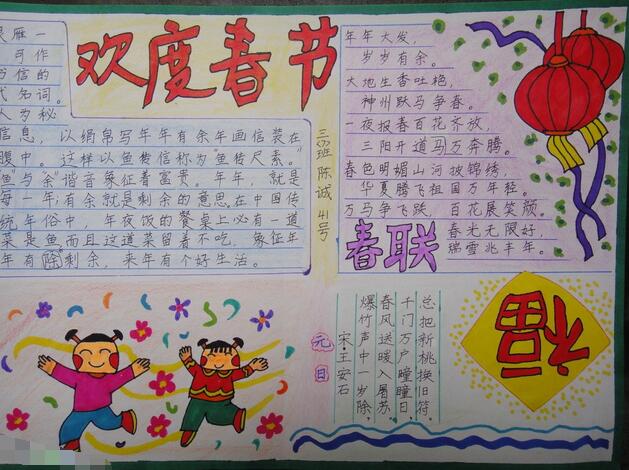 欢度春节
雁一
作
书信的
代名词。
人为秘
信息，以绢帛写年年有余年画信装在
腹中。这样以鱼传信称为"鱼传尺素。"
鱼"与"余"谐音象征着富贵。年年，就是
每一年；有余就是剩余的意思在中国传
统年俗中，年夜饭的餐桌上必有一道
菜是鱼而且这道菜留着不吃，象征年
年有除剩余，来年有个好生活。
班 陈诚 41号
年年大发，
岁岁有余。
大地生香吐艳，
神州跃马争春。
一夜报春百花齐放，
三阳开道马万奔腾。
春色明媚山河披锦绣，
华夏腾飞祖国万年轻。
万马争飞跃，百花展笑颜。
春光无限好，
瑞雪兆丰年。
春联
元日
宋·王安石
爆竹声中一岁除，
春风送暖入屠苏。
千门万户曈曈日，
总把新桃换旧符。
福